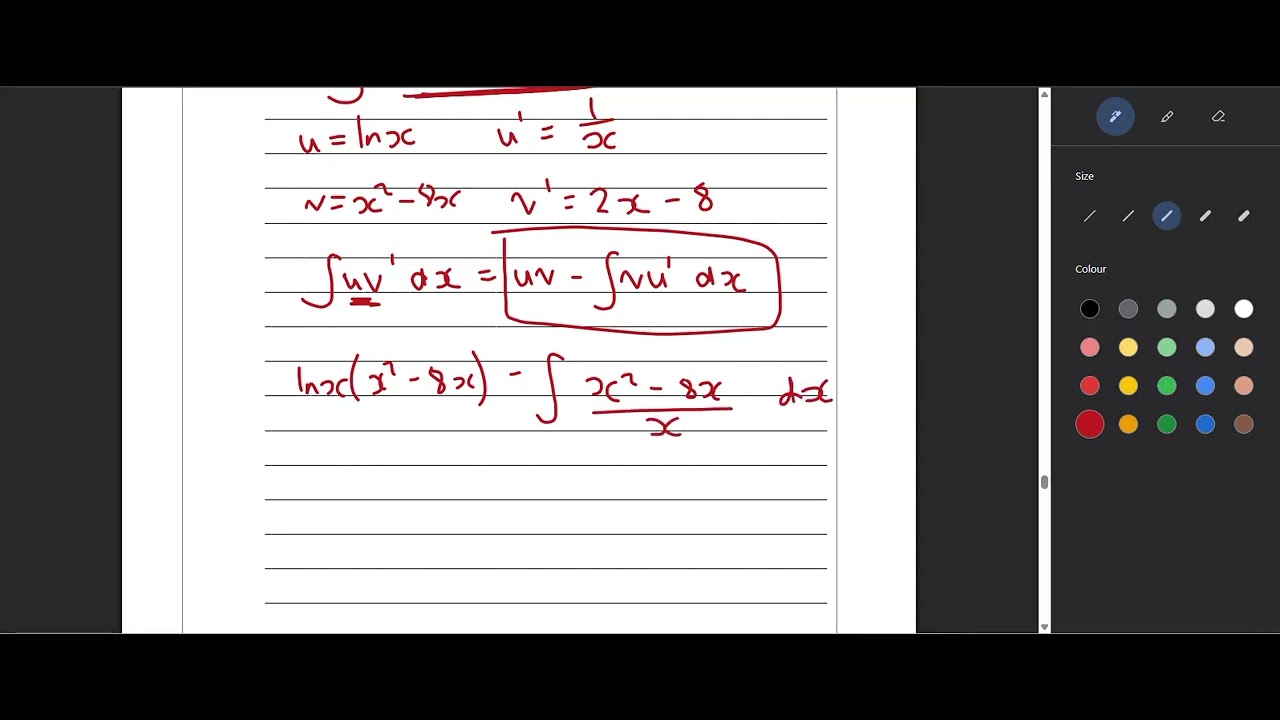 u = lnx u' = 1/x
v = x² - 8x v' = 2x - 8
∫uv' dx = uv - ∫vu' dx
lnx(x² - 8x) - ∫ (x² - 8x)/x dx
Size
Colour